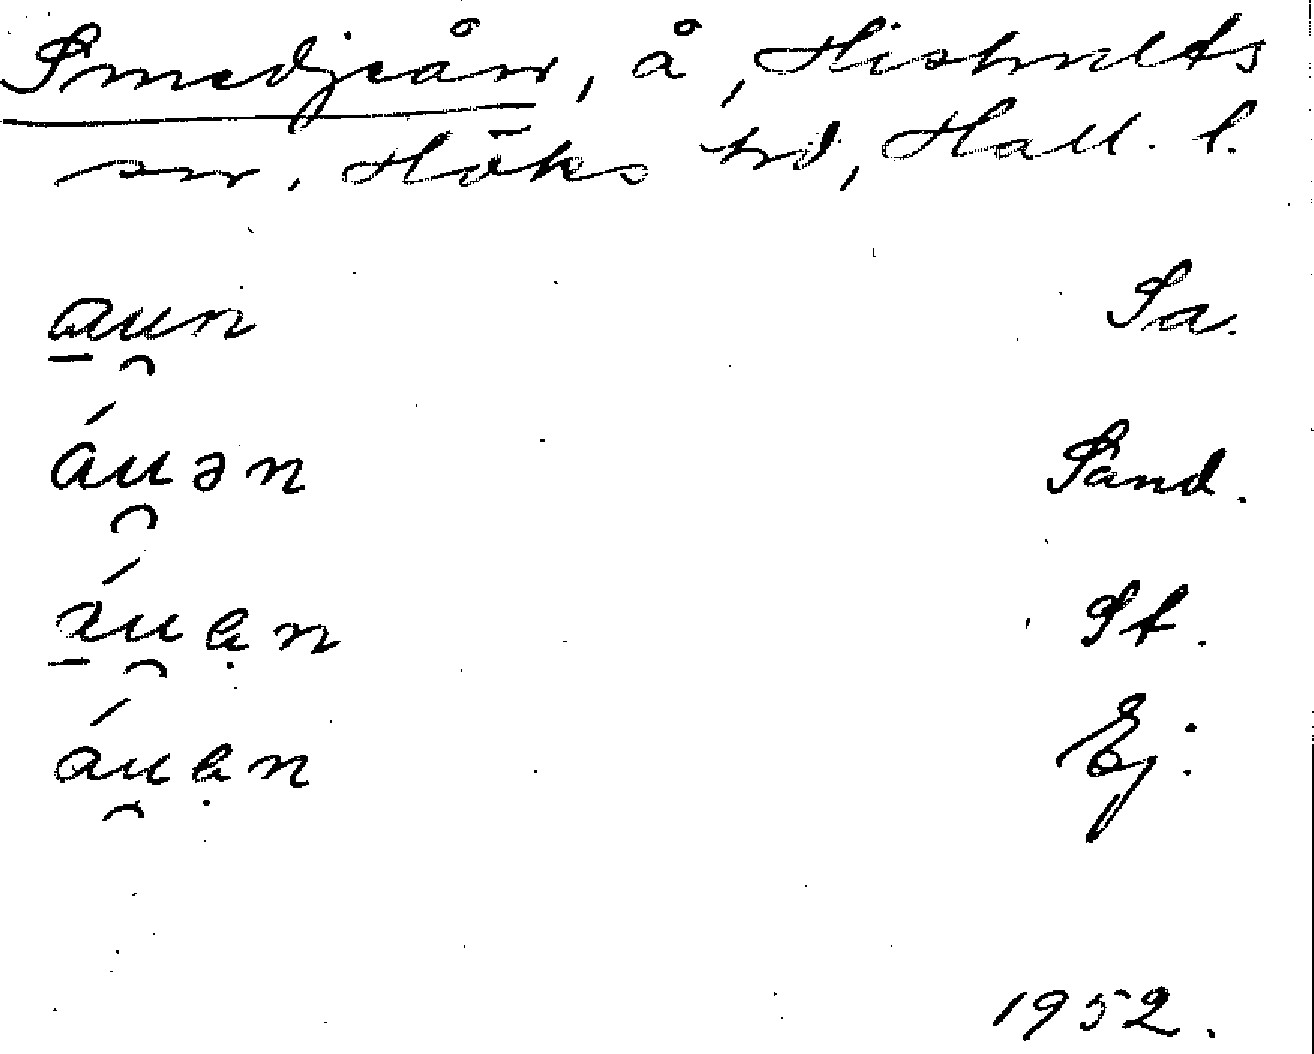 Smedjeån, å, Hishults
sn. Höks hd, Hall. l.
a̠u̯n Sa.
áu̯ən Sand.
á̠u̯ạn St.
áu̯ạn Ej.
1952.